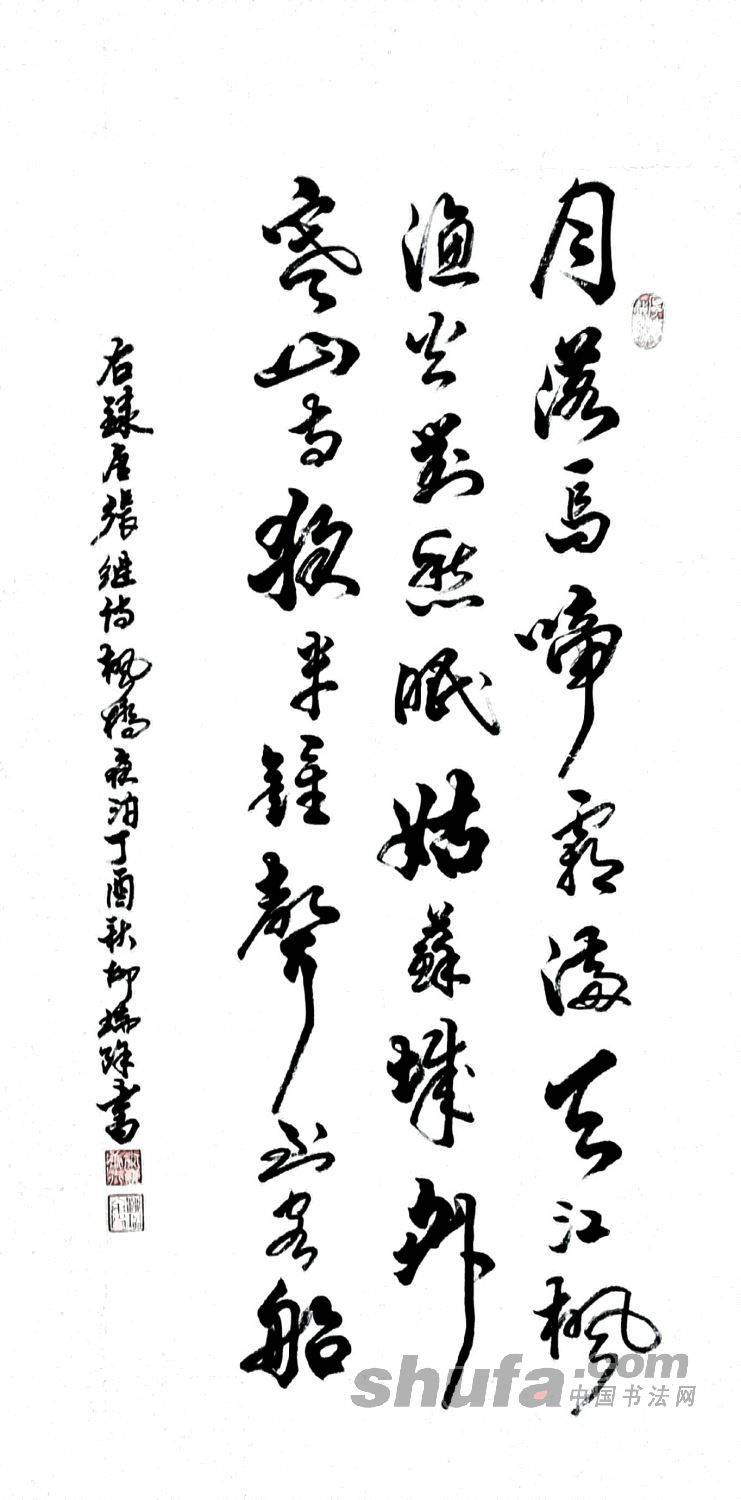 月落烏啼霜滿天江楓
漁火對愁眠姑蘇城外
寒山寺夜半鐘聲到客船
右錄唐張継詩楓橋夜泊丁酉秋柳瑞書
shufa.com
中国书法网